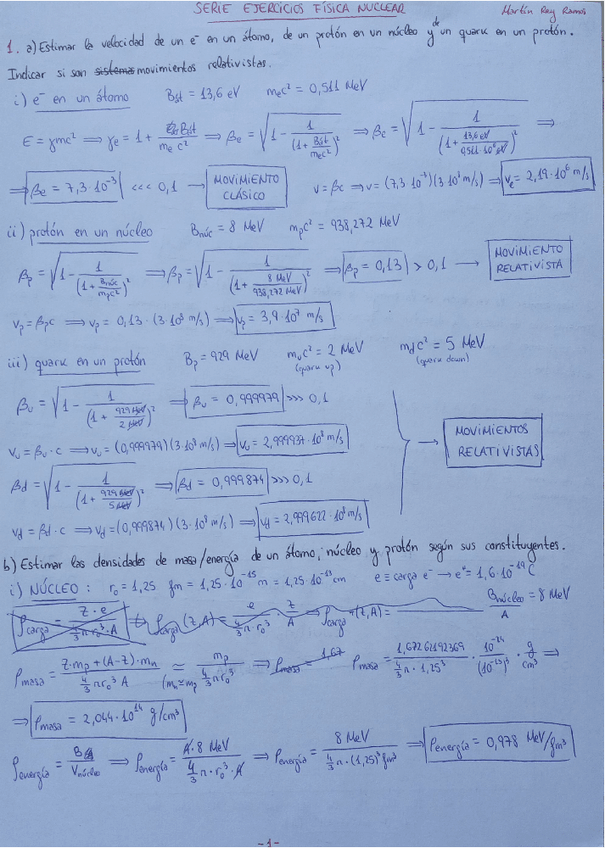 SERIE EJERCICIOS FÍSICA NUCLEAR
Martín Rey Ramos
1. a) Estimar la velocidad de un e⁻ en un átomo, de un protón en un núcleo y de un quark en un protón.
Indicar si son movimientos relativistas.
i) e⁻ en un átomo B_st = 13,6 eV m_e c² = 0,511 MeV
E = γmc² ⟹ γ_e = 1 + B_st/(m_e c²) ⟹ β_e = √(1 - 1/(1 + B_st/(m_e c²))²) ⟹ β_e = √(1 - 1/(1 + 13,6 eV/(0,511·10⁶ eV))²) ⟹
⟹ β_e = 7,3·10⁻³ <<< 0,1 → MOVIMIENTO CLÁSICO v = βc ⟹ v = (7,3·10⁻³)(3·10⁸ m/s) ⟹ v_e = 2,19·10⁶ m/s
ii) protón en un núcleo B_núc = 8 MeV m_p c² = 938,272 MeV
β_p = √(1 - 1/(1 + B_núc/(m_p c²))²) ⟹ β_p = √(1 - 1/(1 + 8 MeV/(938,272 MeV))²) ⟹ β_p = 0,13 > 0,1 → MOVIMIENTO RELATIVISTA
v_p = β_p c ⟹ v_p = 0,13·(3·10⁸ m/s) ⟹ v_p = 3,9·10⁷ m/s
iii) quark en un protón B_p = 929 MeV m_u c² = 2 MeV (quark up) m_d c² = 5 MeV (quark down)
β_u = √(1 - 1/(1 + 929 MeV/(2 MeV))²) ⟹ β_u = 0,999979 >>> 0,1
v_u = β_u · c ⟹ v_u = (0,999979)(3·10⁸ m/s) ⟹ v_u = 2,999937·10⁸ m/s
→ MOVIMIENTOS RELATIVISTAS
β_d = √(1 - 1/(1 + 929 MeV/(5 MeV))²) ⟹ β_d = 0,999874 >>> 0,1
v_d = β_d · c ⟹ v_d = (0,999874)(3·10⁸ m/s) ⟹ v_d = 2,999622·10⁸ m/s
b) Estimar las densidades de masa/energía de un átomo, núcleo y protón según sus constituyentes.
i) NÚCLEO: r₀ = 1,25 fm = 1,25·10⁻¹⁵ m = 1,25·10⁻¹³ cm e ≡ carga e⁻ → e = 1,6·10⁻¹⁹ C
B_núcleo/A = 8 MeV
ρ_masa = (Z·m_p + (A-Z)·m_n)/(4/3 π r₀³ A) ≃ (m_n ≃ m_p) m_p/(4/3 π r₀³) ⟹ ρ_masa = 1,67262192369/(4/3 π · 1,25³) · 10⁻²⁴/(10⁻¹³)³ · g/cm³ ⟹
⟹ ρ_masa = 2,044·10¹⁴ g/cm³
ρ_energía = B/V_núcleo ⟹ ρ_energía = A·8 MeV/(4/3 π·r₀³·A) ⟹ ρ_energía = 8 MeV/(4/3 π·(1,25)³ fm³) ⟹ ρ_energía = 0,978 MeV/fm³
-1-